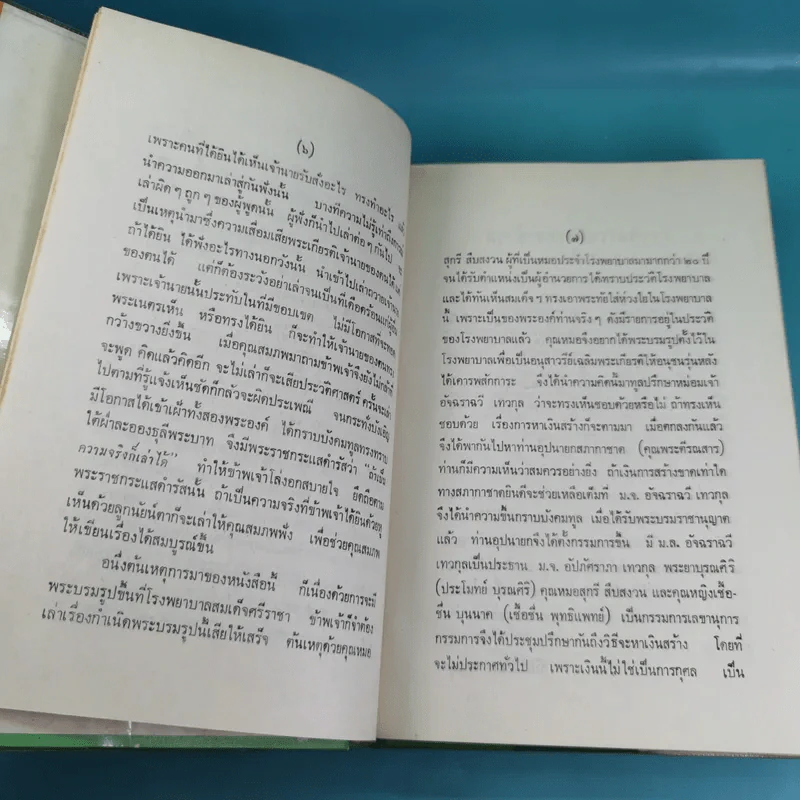 (๖)
เพราะคนที่ได้ยินได้เห็นเจ้านายรับสั่งอะไร ทรงทำอะไร แล้ว
นำความออกมาเล่าสู่กันฟังนั้น บางทีความไม่รู้เท่าถึง
เล่าผิด ๆ ถูก ๆ ของผู้พูดนั้น ผู้ฟังก็นำไปเล่าต่อ ๆ กันไป
เป็นเหตุนำมาซึ่งความเสื่อมเสียพระเกียรติเจ้านายของตนได้
ถ้าได้ยิน ได้ฟังอะไรทางนอกวังนั้น นำเข้าไปเล่าถวายเจ้านาย
ของตนได้ แต่ก็ต้องระวังอย่าเล่าจนเป็นที่เดือดร้อนแก่ผู้อื่น
เพราะเจ้านายนั้นประทับในที่มีขอบเขต ไม่มีโอกาสที่จะทอด
พระเนตรเห็น หรือทรงได้ยิน ก็จะทำให้เจ้านายของตนทรง
กว้างขวางยิ่งขึ้น เมื่อคุณสมภพมาถามข้าพเจ้าจึงยังไม่กล้าที่
จะพูด คิดแล้วคิดอีก จะไม่เล่าก็จะเสียประวัติศาสตร์ ครั้นจะเล่า
ไปตามที่รู้แจ้งเห็นชัดก็กลัวจะผิดประเพณี จนกระทั่งบังเอิญ
มีโอกาสได้เข้าเฝ้าทั้งสองพระองค์ ได้กราบบังคมทูลทรงทราบ
ใต้ฝ่าละอองธุลีพระบาท จึงมีพระราชกระแสดำรัสว่า "ถ้าเป็น
ความจริงก็เล่าได้" ทำให้ข้าพเจ้าโล่งอกสบายใจ ยึดถือตาม
พระราชกระแสดำรัสนั้น ถ้าเป็นความจริงที่ข้าพเจ้าได้ยินด้วยหู
เห็นด้วยลูกนัยน์ตาก็จะเล่าให้คุณสมภพฟัง เพื่อช่วยคุณสมภพ
ให้เขียนเรื่องได้สมบูรณ์ขึ้น
อนึ่งต้นเหตุการมาของหนังสือนี้ ก็เนื่องด้วยการจะมี
พระบรมรูปขึ้นที่โรงพยาบาลสมเด็จศรีราชา ข้าพเจ้าก็จำต้อง
เล่าเรื่องกำเนิดพระบรมรูปนี้เสียให้เสร็จ ต้นเหตุด้วยคุณหมอ
(๗)
สุกรี สืบสงวน ผู้ที่เป็นหมอประจำโรงพยาบาลมามากกว่า ๒๐ ปี
จนได้รับตำแหน่งเป็นผู้อำนวยการ ได้ทราบประวัติโรงพยาบาล
และได้ทันเห็นสมเด็จ ฯ ทรงเอาพระทัยใส่ห่วงใยในโรงพยาบาล
นี้ เพราะเป็นของพระองค์ท่านจริง ๆ ดังมีรายการอยู่ในประวัติ
ของโรงพยาบาลแล้ว คุณหมอจึงอยากได้พระบรมรูปตั้งไว้ใน
โรงพยาบาลเพื่อเป็นอนุสาวรีย์เฉลิมพระเกียรติให้อนุชนรุ่นหลัง
ได้เคารพสักการะ จึงได้นำความคิดนี้มาทูลปรึกษาหม่อมเจ้า
อัจฉราฉวี เทวกุล ว่าจะทรงเห็นชอบด้วยหรือไม่ ถ้าทรงเห็น
ชอบด้วย เรื่องการหาเงินสร้างก็จะตามมา เมื่อตกลงกันแล้ว
จึงได้พากันไปหาท่านอุปนายกสภากาชาด (คุณพระตีรณสาร)
ท่านก็มีความเห็นว่าสมควรอย่างยิ่ง ถ้าเงินการสร้างขาดเท่าใด
ทางสภากาชาดยินดีจะช่วยเหลือเต็มที่ ม.จ. อัจฉราฉวี เทวกุล
จึงได้นำความขึ้นกราบบังคมทูล เมื่อได้รับพระบรมราชานุญาต
แล้ว ท่านอุปนายกจึงได้ตั้งกรรมการขึ้น มี ม.ล. อัจฉราฉวี
เทวกุลเป็นประธาน ม.จ. อัปภัศราภา เทวกุล พระยาบุรณศิริ
(ประโมทย์ บุรณศิริ) คุณหมอสุกรี สืบสงวน และคุณหญิงเชื้อ-
ชื่น บุนนาค (เชื้อชื่น พุทธิแพทย์) เป็นกรรมการเลขานุการ
กรรมการจึงได้ประชุมปรึกษากันถึงวิธีจะหาเงินสร้าง โดยที่
จะไม่ประกาศทั่วไป เพราะเงินนี้ไม่ใช่เป็นการกุศล เป็น